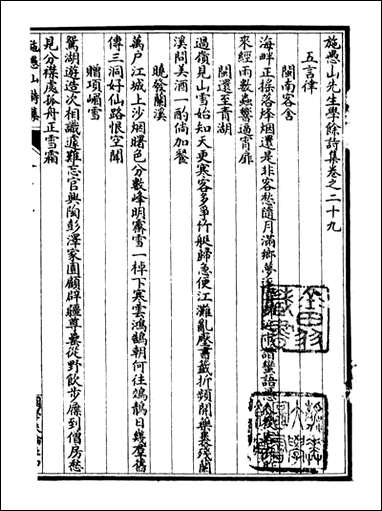 施愚山先生學餘詩集卷之二十九
五言律
閩南客舍
海畔正搖落烽烟還是非客愁隨月滿鄉夢
來經雨數蟲響過宵扉
閩還至青湖
過嶺見山雪始知天更寒客多爭竹艇歸急便江灘亂壓書籤折頻開藥裹殘關
溪問美酒一酌倘加餐
曉發蘭溪
萬户江城上沙烟曙色分數峰明霽雪一棹下寒雲鴻鵠朝何往鵁鶄日幾羣舊
傳三洞好仙路恨空聞
贈項嵋雪
鴛湖遊造次相識遽難忘官興陶彭澤家園顧辟疆尊罍從野飲步屧到僧房愁
見分襟處孤舟正雪霜